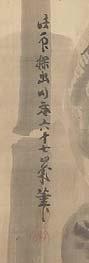 法印探幽行年六十七歳筆